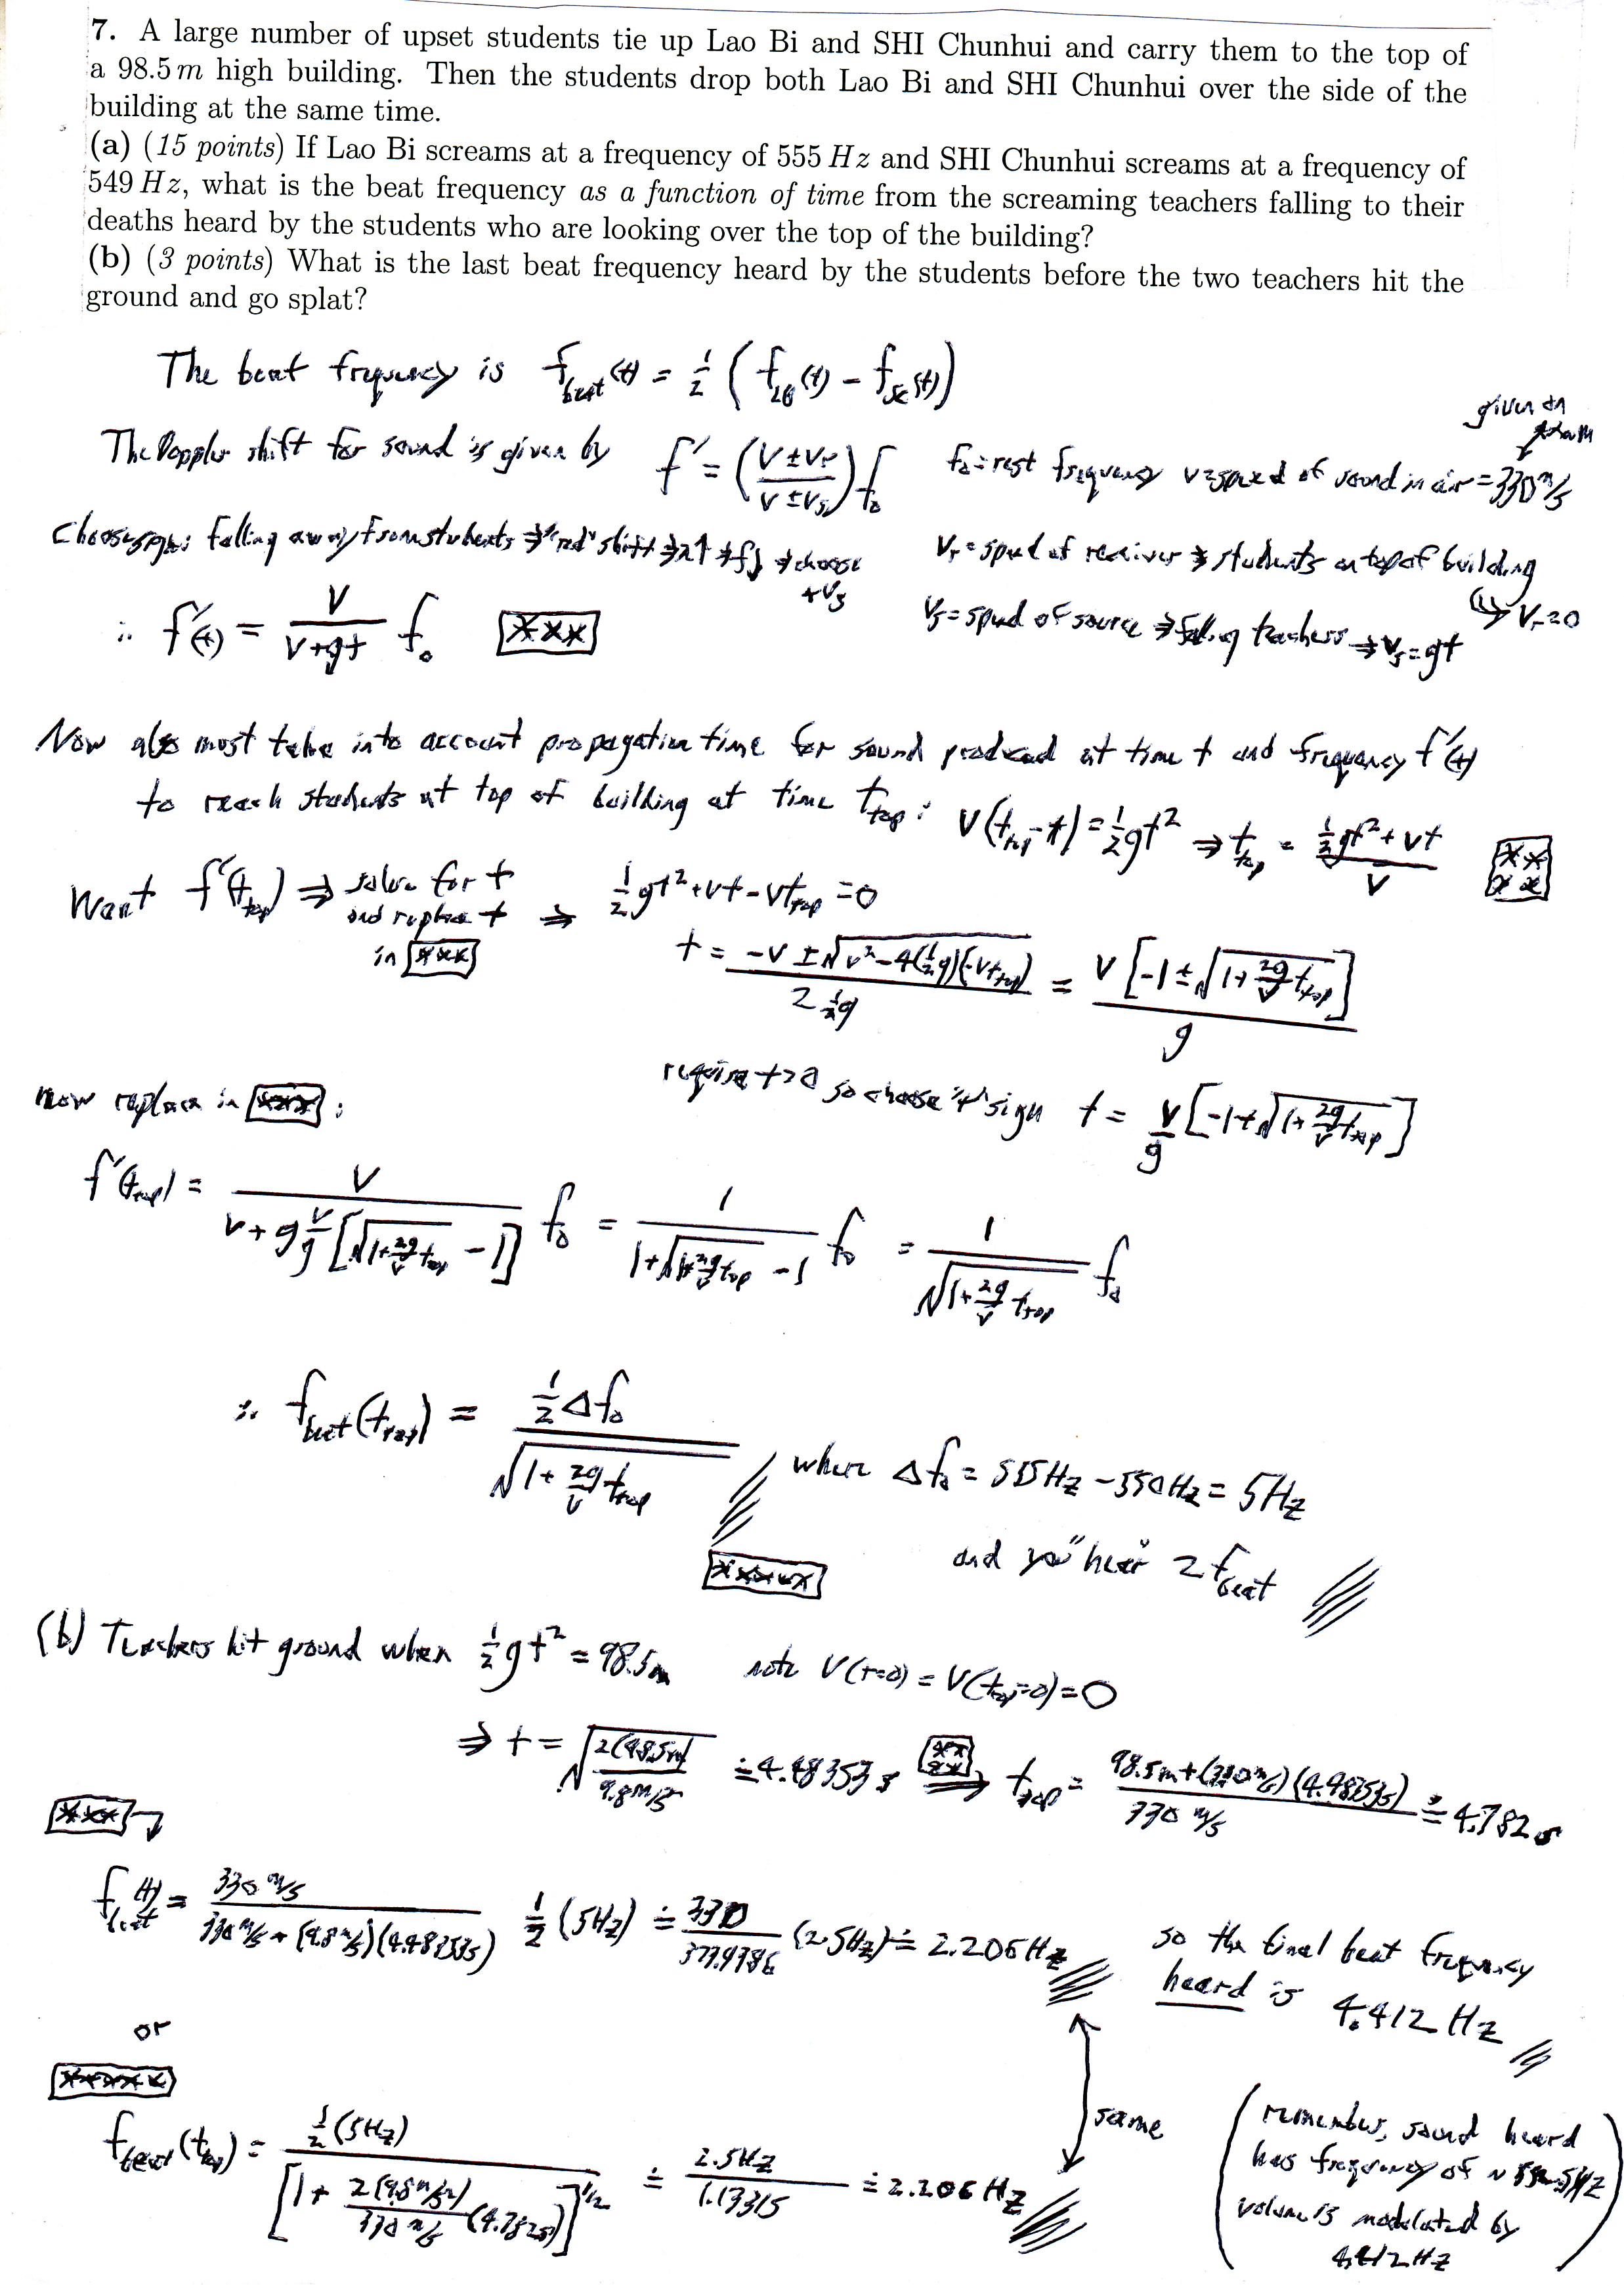 7. A large number of upset students tie up Lao Bi and SHI Chunhui and carry them to the top of
a 98.5 m high building. Then the students drop both Lao Bi and SHI Chunhui over the side of the
building at the same time.
(a) (15 points) If Lao Bi screams at a frequency of 555 Hz and SHI Chunhui screams at a frequency of
549 Hz, what is the beat frequency as a function of time from the screaming teachers falling to their
deaths heard by the students who are looking over the top of the building?
(b) (3 points) What is the last beat frequency heard by the students before the two teachers hit the
ground and go splat?
The beat frequency is f_beat(t) = 1/2 (f_LB(t) - f_SC(t))
given on
The Doppler shift for sound is given by f' = ((v ± v_r)/(v ± v_s)) f_0 f_0 = rest frequency v = speed of sound in air = 330 m/s
choose sign: falling away from students ⇒ "red" shift ⇒ λ↑ ⇒ f↓ ⇒ choose +v_s
v_r = speed of receiver ⇒ students on top of building
↳ v_r = 0
∴ f'(t) = v/(v + gt) f_0 [***]
v_s = speed of source ⇒ falling teachers ⇒ v_s = gt
Now also must take into account propagation time for sound produced at time t and frequency f'(t)
to reach students at top of building at time t_top: v(t_top - t) = 1/2 gt² ⇒ t_top = (1/2 gt² + vt)/v [****]
Want f'(t_top) ⇒ solve for t and replace t in [***] ⇒ 1/2 gt² + vt - vt_top = 0
t = (-v ± √(v² - 4(1/2 g)(-vt_top)))/(2 1/2 g) = v[-1 ± √(1 + 2g/v t_top)]/g
require t>0 so choose "+" sign t = v/g [-1 + √(1 + 2g/v t_top)]
now replace in [***]:
f'(t_top) = v/(v + g v/g [√(1 + 2g/v t_top) - 1]) f_0 = 1/(1 + √(1 + 2g/v t_top) - 1) f_0 = 1/√(1 + 2g/v t_top) f_0
∴ f_beat(t_top) = 1/2 Δf_0/√(1 + 2g/v t_top) where Δf_0 = 555Hz - 550Hz = 5Hz
[*****]
and you "hear" 2 f_beat
(b) Teachers hit ground when 1/2 gt² = 98.5m note v(t=0) = v(t_top=0) = 0
⇒ t = √(2(98.5m)/9.8m/s²) ≐ 4.48353 s [****] ⇒ t_top = (98.5m + (330 m/s)(4.48353s))/(330 m/s) ≐ 4.782 s
[***]
f_beat(t) = 330 m/s/(330 m/s + (9.8 m/s²)(4.48353s)) 1/2 (5Hz) ≐ 330/373.9386 (2.5Hz) ≐ 2.206 Hz
so the final beat frequency
heard is 4.412 Hz
or
[*****]
f_beat(t_top) = 1/2 (5Hz)/[1 + 2(9.8m/s²)/(330 m/s) (4.782s)]^1/2 ≐ 2.5Hz/1.13315 ≐ 2.206 Hz
same
(remember, sound heard
has frequency of ~ 552.5Hz
volume is modulated by
4.412 Hz)